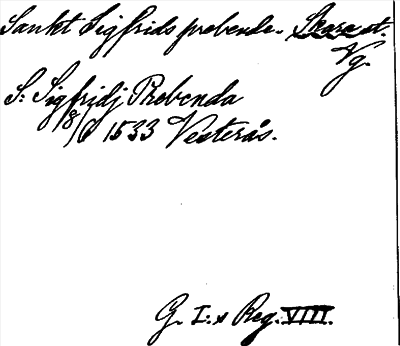 Sankt Sigfrids prebende. Skara st.
Vg.
S: Sigfridj Prebenda
18/6 1533 Vesterås.
G. I:s Reg. VIII.